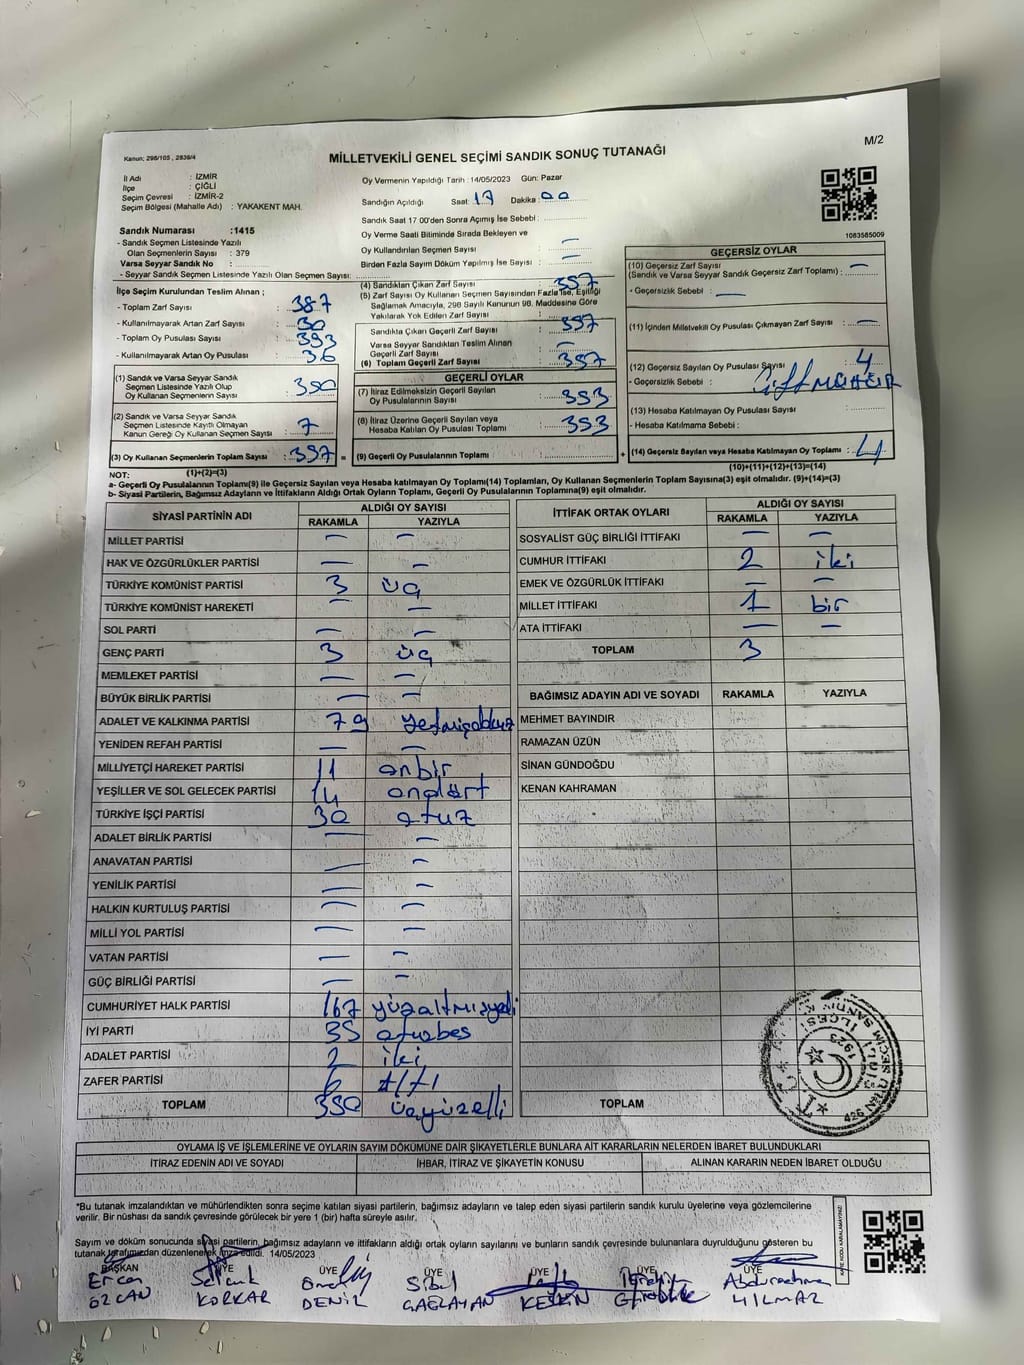 M/2
Kanun; 298/105 , 2839/4
MİLLETVEKİLİ GENEL SEÇİMİ SANDIK SONUÇ TUTANAĞI
İl Adı : İZMİR
İlçe : ÇİĞLİ
Seçim Çevresi : İZMİR-2
Seçim Bölgesi (Mahalle Adı) : YAKAKENT MAH.
Sandık Numarası :1415
- Sandık Seçmen Listesinde Yazılı
Olan Seçmenlerin Sayısı : 379
Varsa Seyyar Sandık No :
- Seyyar Sandık Seçmen Listesinde Yazılı Olan Seçmen Sayısı:
Oy Vermenin Yapıldığı Tarih : 14/05/2023 Gün: Pazar
Sandığın Açıldığı Saat: 17 Dakika: 00
Sandık Saat 17 00'den Sonra Açımış İse Sebebi :
Oy Verme Saati Bitiminde Sırada Bekleyen ve
Oy Kullandırılan Seçmen Sayısı : —
Birden Fazla Sayım Döküm Yapılmış İse Sayısı : —
1083585009
İlçe Seçim Kurulundan Teslim Alınan ;
- Toplam Zarf Sayısı : 387
- Kullanılmayarak Artan Zarf Sayısı : 30
- Toplam Oy Pusulası Sayısı : 393
- Kullanılmayarak Artan Oy Pusulası : 36
(1) Sandık ve Varsa Seyyar Sandık
Seçmen Listesinde Yazılı Olup
Oy Kullanan Seçmenlerin Sayısı : 350
(2) Sandık ve Varsa Seyyar Sandık
Seçmen Listesinde Kayıtlı Olmayan
Kanun Gereği Oy Kullanan Seçmen Sayısı : 7
(3) Oy Kullanan Seçmenlerin Toplam Sayısı : 357
(1)+(2)=(3)
(4) Sandıktan Çıkan Zarf Sayısı : 357
(5) Zarf Sayısı Oy Kullanan Seçmen Sayısından Fazla İse, Eşitliği
Sağlamak Amacıyla, 298 Sayılı Kanunun 98. Maddesine Göre
Yakılarak Yok Edilen Zarf Sayısı :
Sandıkta Çıkan Geçerli Zarf Sayısı : 357
Varsa Seyyar Sandıktan Teslim Alınan
Geçerli Zarf Sayısı : —
(6) Toplam Geçerli Zarf Sayısı : 357
GEÇERLİ OYLAR
(7) İtiraz Edilmeksizin Geçerli Sayılan
Oy Pusulalarının Sayısı : 353
(8) İtiraz Üzerine Geçerli Sayılan veya
Hesaba Katılan Oy Pusulası Toplamı : 353
= (9) Geçerli Oy Pusulalarının Toplamı +
GEÇERSİZ OYLAR
(10) Geçersiz Zarf Sayısı
(Sandık ve Varsa Seyyar Sandık Geçersiz Zarf Toplamı) : —
- Geçersizlik Sebebi : —
(11) İçinden Milletvekili Oy Pusulası Çıkmayan Zarf Sayısı : —
(12) Geçersiz Sayılan Oy Pusulası Sayısı : 4
- Geçersizlik Sebebi : Çift MÜHÜR
(13) Hesaba Katılmayan Oy Pusulası Sayısı :
- Hesaba Katılmama Sebebi :
(14) Geçersiz Sayılan veya Hesaba Katılmayan Oy Toplamı : 4
(10)+(11)+(12)+(13)=(14)
NOT:
a- Geçerli Oy Pusulalarının Toplamı(9) ile Geçersiz Sayılan veya Hesaba katılmayan Oy Toplamı(14) Toplamları, Oy Kullanan Seçmenlerin Toplam Sayısına(3) eşit olmalıdır. (9)+(14)=(3)
b- Siyasi Partilerin, Bağımsız Adayların ve İttifakların Aldığı Ortak Oyların Toplamı, Geçerli Oy Pusulalarının Toplamına(9) eşit olmalıdır.
SİYASİ PARTİNİN ADI ALDIĞI OY SAYISI
RAKAMLA YAZIYLA
MİLLET PARTİSİ — —
HAK VE ÖZGÜRLÜKLER PARTİSİ — —
TÜRKİYE KOMÜNİST PARTİSİ 3 üç
TÜRKİYE KOMÜNİST HAREKETİ — —
SOL PARTİ — —
GENÇ PARTİ 3 üç
MEMLEKET PARTİSİ — —
BÜYÜK BİRLİK PARTİSİ — —
ADALET VE KALKINMA PARTİSİ 79 yetmişdokuz
YENİDEN REFAH PARTİSİ — —
MİLLİYETÇİ HAREKET PARTİSİ 11 onbir
YEŞİLLER VE SOL GELECEK PARTİSİ 14 ondört
TÜRKİYE İŞÇİ PARTİSİ 30 otuz
ADALET BİRLİK PARTİSİ — —
ANAVATAN PARTİSİ — —
YENİLİK PARTİSİ — —
HALKIN KURTULUŞ PARTİSİ — —
MİLLİ YOL PARTİSİ — —
VATAN PARTİSİ — —
GÜÇ BİRLİĞİ PARTİSİ — —
CUMHURİYET HALK PARTİSİ 167 yüzaltmışyedi
İYİ PARTİ 35 otuzbeş
ADALET PARTİSİ 2 iki
ZAFER PARTİSİ 6 altı
TOPLAM 350 üçyüzelli
İTTİFAK ORTAK OYLARI ALDIĞI OY SAYISI
RAKAMLA YAZIYLA
SOSYALİST GÜÇ BİRLİĞİ İTTİFAKI — —
CUMHUR İTTİFAKI 2 iki
EMEK VE ÖZGÜRLÜK İTTİFAKI — —
MİLLET İTTİFAKI 1 bir
ATA İTTİFAKI — —
TOPLAM 3
BAĞIMSIZ ADAYIN ADI VE SOYADI RAKAMLA YAZIYLA
MEHMET BAYINDIR
RAMAZAN ÜZÜN
SİNAN GÜNDOĞDU
KENAN KAHRAMAN
TOPLAM
OYLAMA İŞ VE İŞLEMLERİNE VE OYLARIN SAYIM DÖKÜMÜNE DAİR ŞİKAYETLERLE BUNLARA AİT KARARLARIN NELERDEN İBARET BULUNDUKLARI
İTİRAZ EDENİN ADI VE SOYADI İHBAR, İTİRAZ VE ŞİKAYETİN KONUSU ALINAN KARARIN NEDEN İBARET OLDUĞU
*Bu tutanak imzalandıktan ve mühürlendikten sonra seçime katılan siyasi partilerin, bağımsız adayların ve talep eden siyasi partilerin sandık kurulu üyelerine veya gözlemcilerine
verilir. Bir nüshası da sandık çevresinde görülecek bir yere 1 (bir) hafta süreyle asılır.
Sayım ve döküm sonucunda siyasi partilerin, bağımsız adayların ve ittifakların aldığı ortak oyların sayılarını ve bunların sandık çevresinde bulunanlara duyrulduğunu gösteren bu
tutanak tarafımızdan düzenlenerek imza edildi. 14/05/2023
BAŞKAN ÜYE ÜYE ÜYE ÜYE ÜYE ÜYE
Ercan Selcuk Sibel Abdurrahman
ÖZCAN KORKAR DENİZ ÇAĞLAYAN KESKİN YILMAZ